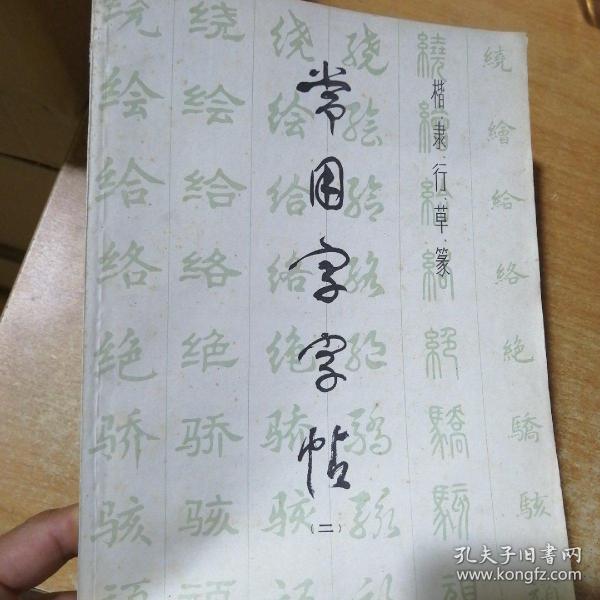 常用字字帖
(二)
楷·隶·行·草·篆
绕 绘 给 络 绝 骄 骇
绕 绘 给 络 绝 骄 骇
绕 绘 给 络 绝 骄 骇
绕 绘 给 络 绝 骄 骇
繞 繪 給 絡 絕 驕 駭
繞 繪 給 絡 絶 驕 駭
孔夫子旧书网
www.kongfz.com